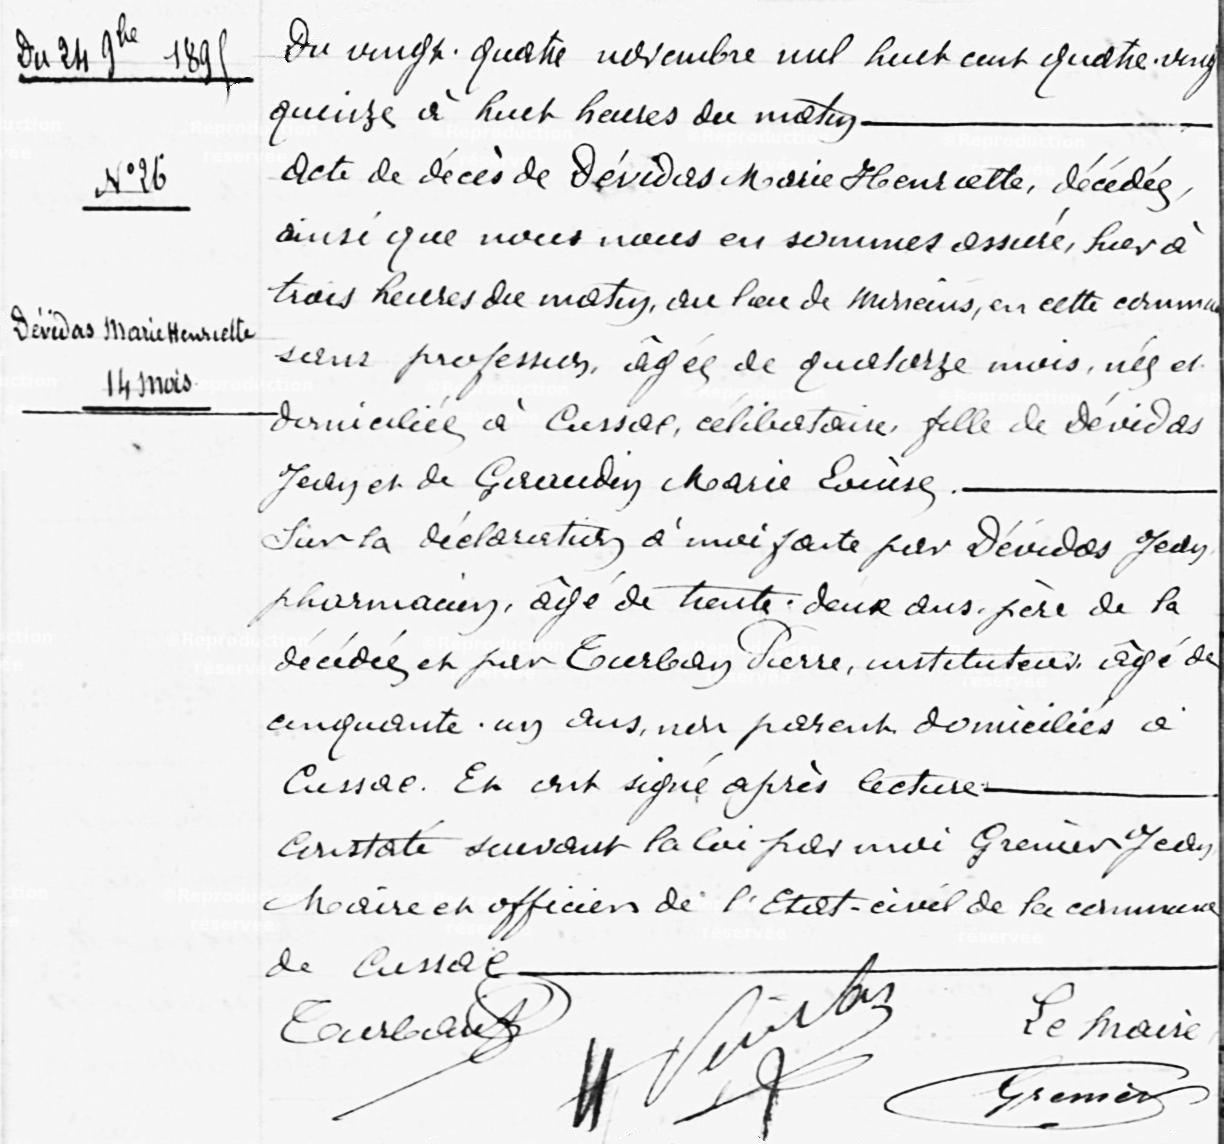 Du 24 9bre 1895
N° 26
Dévidas Marie Henriette
14 mois
Du vingt-quatre novembre mil huit cent quatre-ving
quinze à huit heures du matin
Acte de décès de Dévidas Marie Henriette, décédée,
ainsi que nous nous en sommes assuré, hier à
trois heures du matin, au lieu de en cette commune
sans profession, âgée de quatorze mois, née et
domiciliée à Cussac, célibataire, fille de Dévidas
Jean et de Giraudin Marie Louise.
Sur la déclaration à moi faite par Dévidas Jean
pharmacien, âgé de trente-deux ans, père de la
décédée et par Turban Pierre, instituteur, âgé de
cinquante-un ans, non parent domiciliés à
Cussac. Et ont signé après lecture
Constaté suivant la loi par moi Grenier Jean
Maire et officier de l'Etat-civil de la commune
de Cussac
Turban
Dévidas
Le Maire
Grenier
©Reproduction
réservée